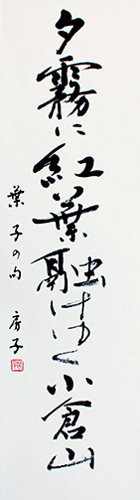 夕霧に紅葉融けゆく小倉山
葉子の句 房子